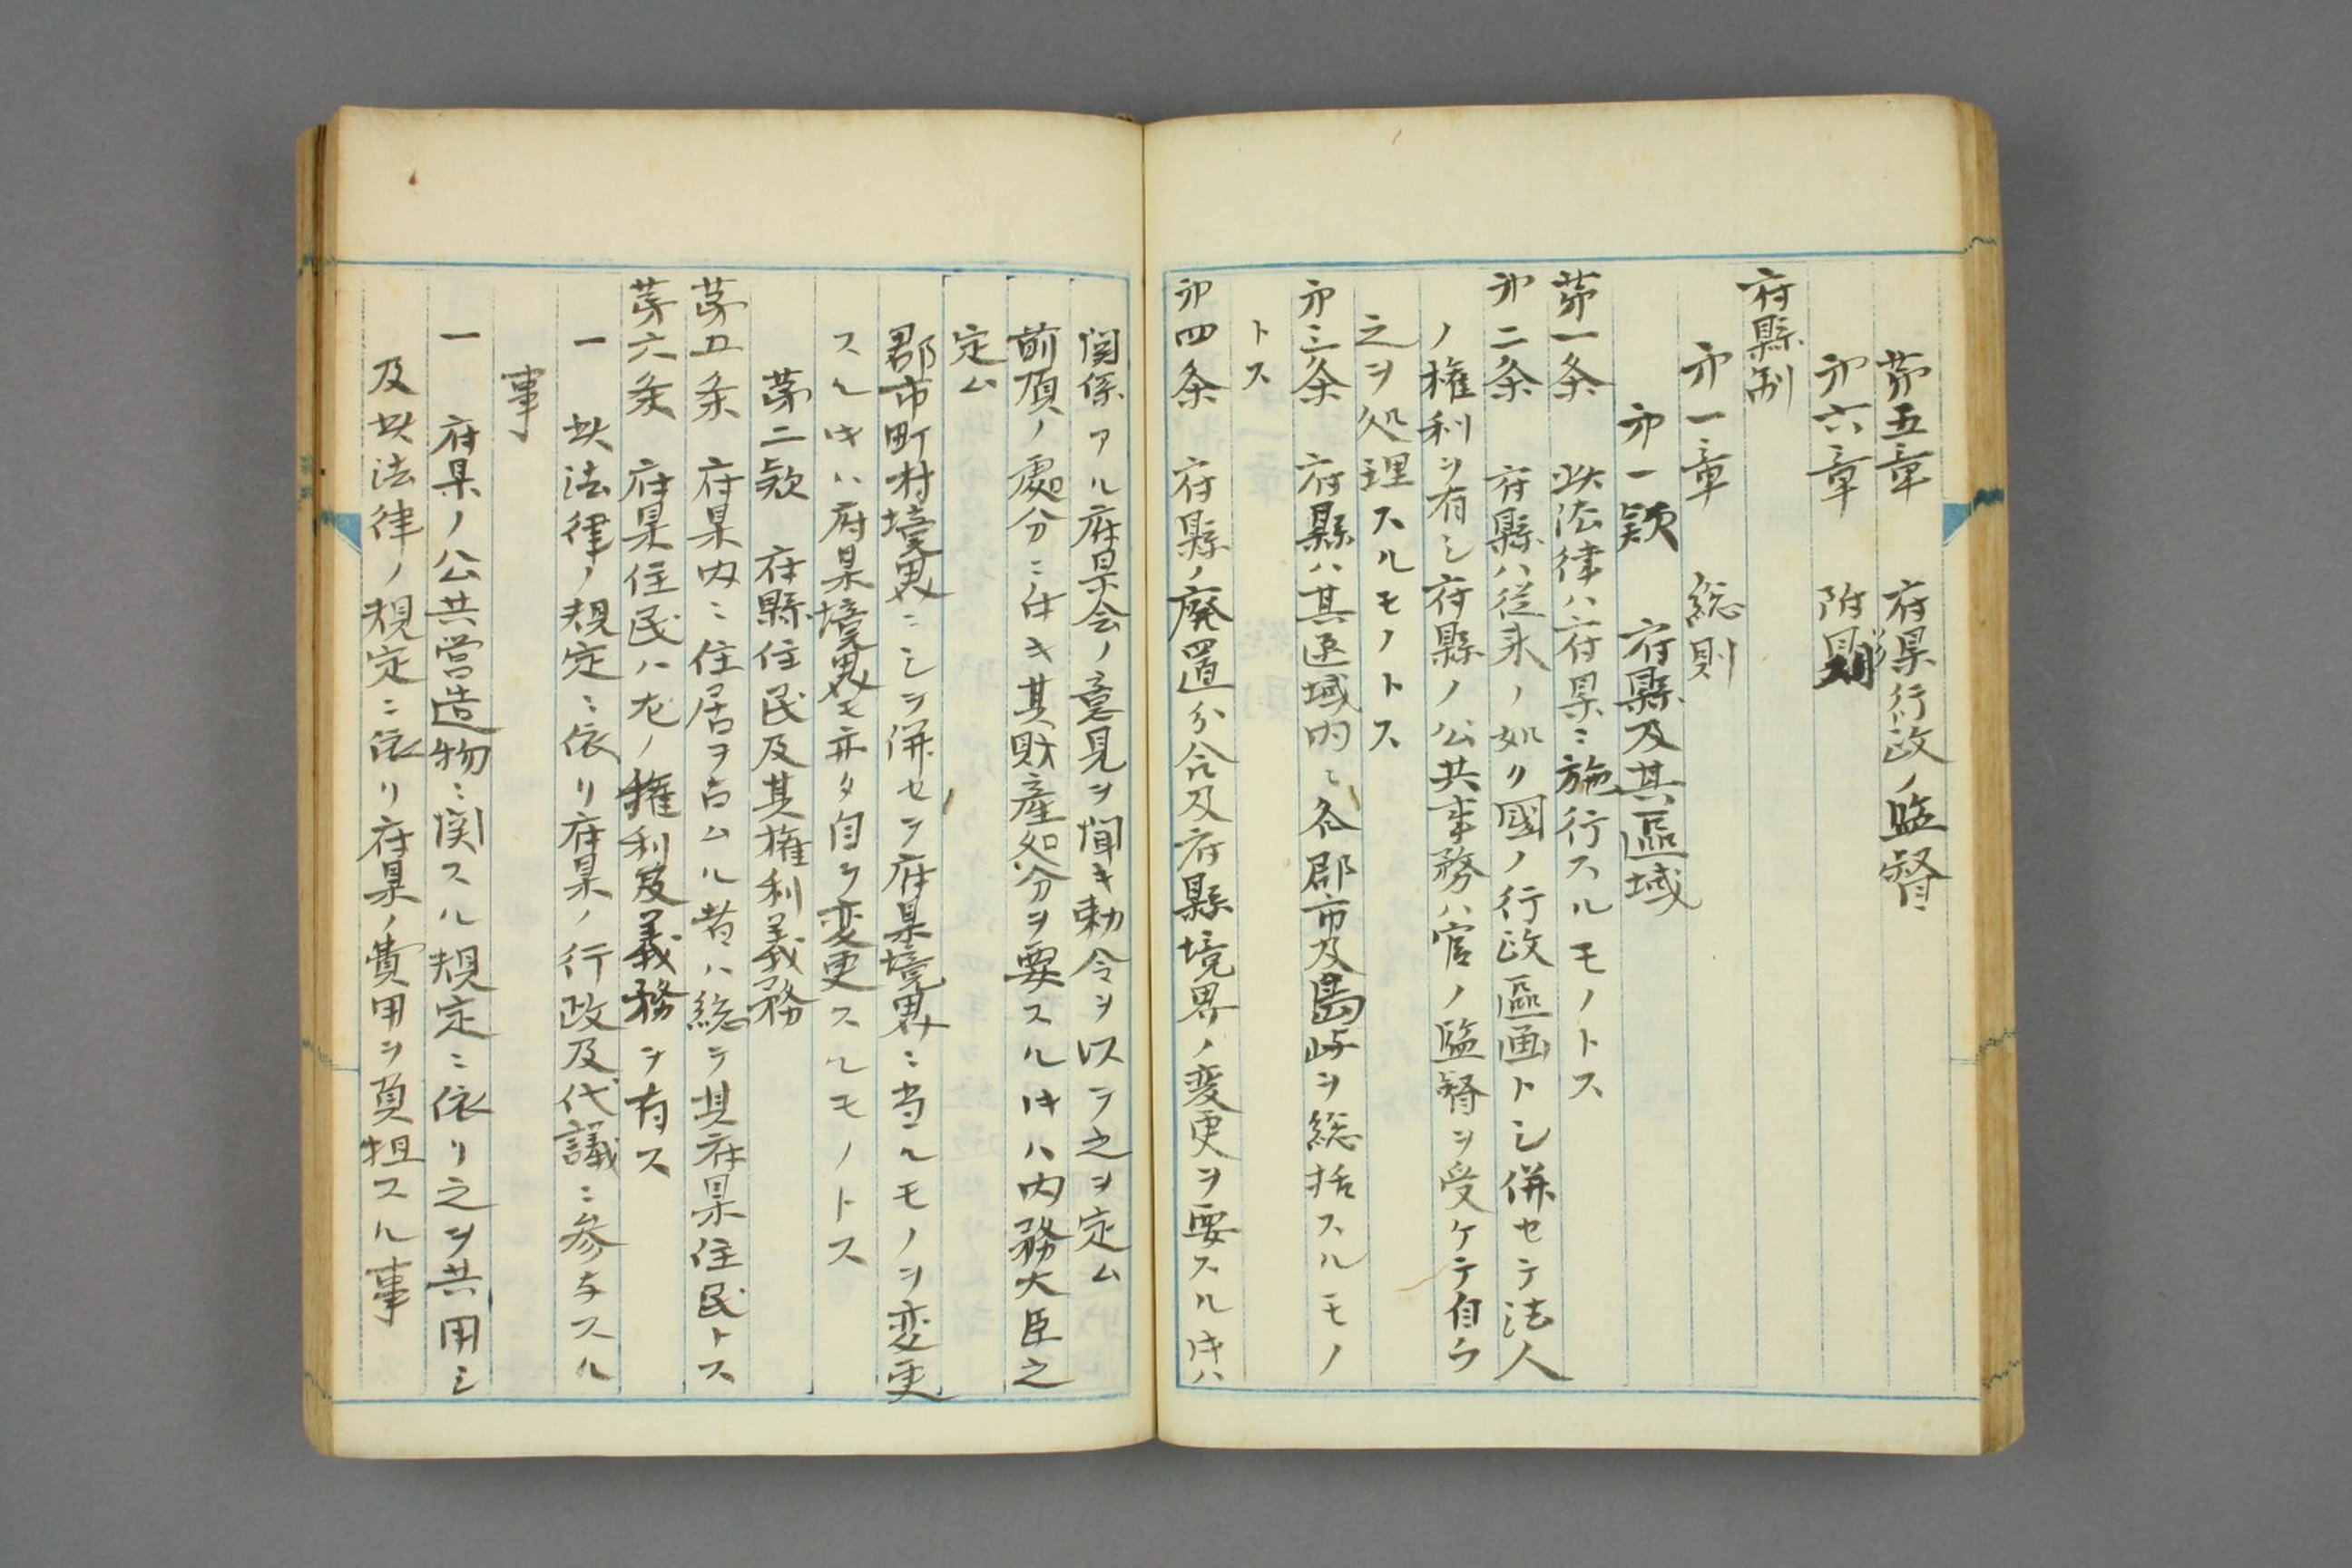 第五章　府県行政ノ監督
第六章　附則
府縣制
第一章　総則
第一款　府縣及其區域
第一条　此法律ハ府県ニ施行スルモノトス
第二条　府縣ハ従来ノ如ク國ノ行政區画トシ併セテ法人
ノ権利ヲ有シ府縣ノ公共事務ハ官ノ監督ヲ受ケテ自ラ
之ヲ処理スルモノトス
第三条　府縣ハ其区域内ニ在ル郡市及島嶼ヲ総括スルモノ
トス
第四条　府縣ノ廃置分合及府縣境界ノ変更ヲ要スルトキハ
関係アル府県会ノ意見ヲ聞キ勅令ヲ以テ之ヲ定ム
前項ノ處分ニ付キ其財産処分ヲ要スルトキハ内務大臣之
定ム
郡市町村境界ニシヲ併セテ府県境界ニ当ルモノヲ変更
スルトキハ府県境界モ亦タ自ラ変更スルモノトス
第二款　府縣住民及其権利義務
第五条　府県内ニ住居ヲ占ムル者ハ総テ其府県住民トス
第六条　府県住民ハ左ノ権利及義務ヲ有ス
一　此法律ノ規定ニ依リ府県ノ行政及代議ニ参与スル
事
一　府県ノ公共営造物ニ関スル規定ニ依リ之ヲ共用シ
及此法律ノ規定ニ依リ府県ノ費用ヲ負担スル事